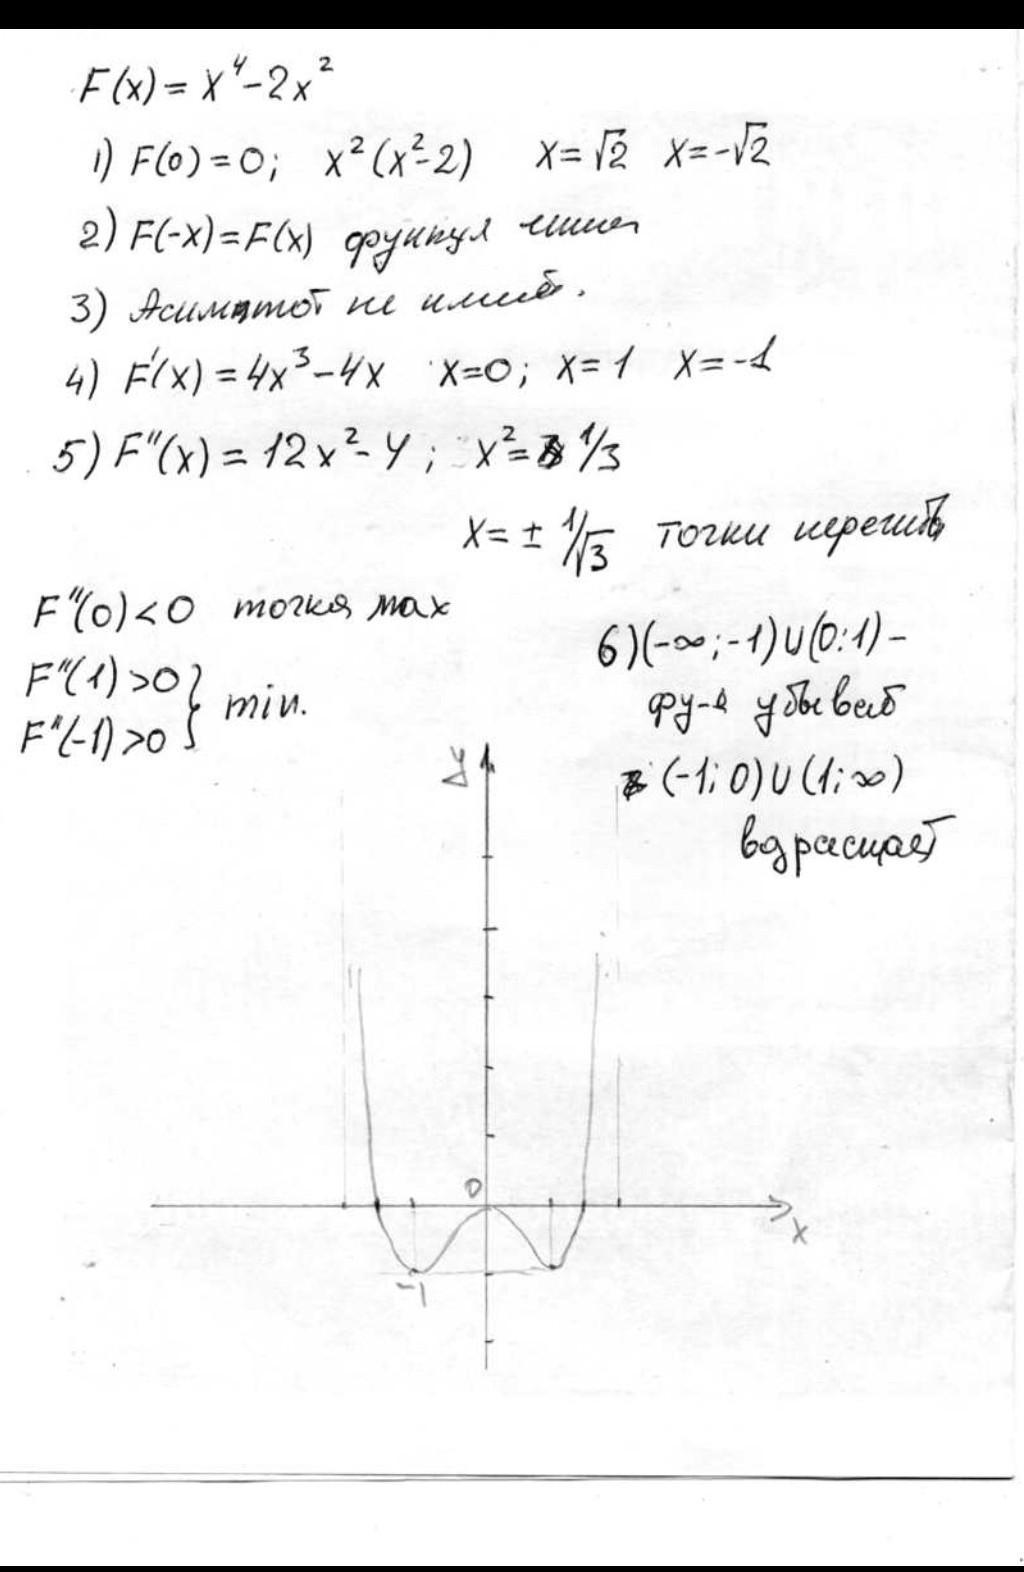 F(x) = x⁴-2x²
1) F(0) = 0; x²(x²-2) x=√2 x=-√2
2) F(-x)=F(x) функция
3) Асимптот не имеет.
4) F'(x) = 4x³-4x x=0; x=1 x=-1
5) F''(x) = 12x²-4; x²= 1/3
x= ± 1/√3 точки перегиба
F''(0)<0 точка max
F''(1)>0
F''(-1)>0 } min.
6)(-∞;-1)∪(0:1)-
фу-я убывает
(-1; 0)∪(1; ∞)
возрастает
y
0
x
-1